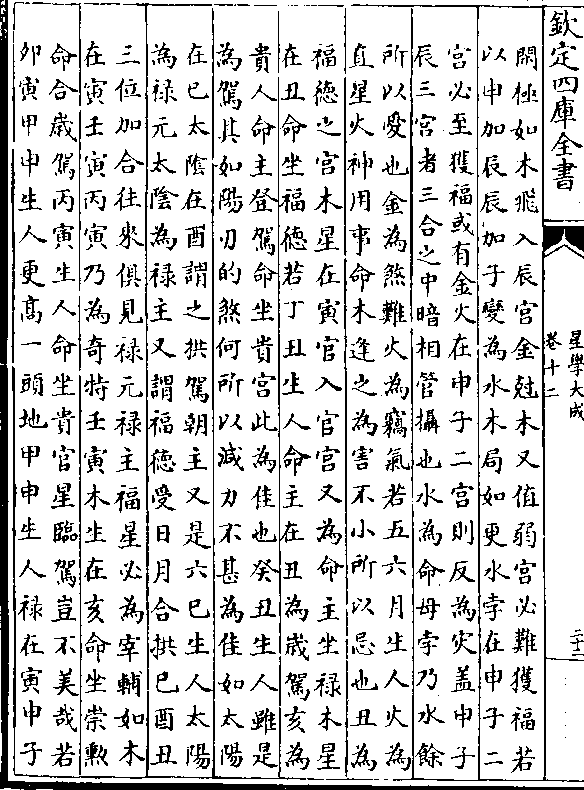 欽定四庫全書
星學大成
卷十二
二十二
閑極如木飛入辰宫金尅木又值弱宫必難獲福若
以申加辰辰加子變為水木局如更水孛在申子二
宫必至獲福或有金火在申子二宫則反為灾盖申子
辰三宫者三合之中暗相管攝也水為命母孛乃水餘
所以愛也金為煞難火為竊氣若五六月生人火為
直星火神用事命木逢之為害不小所以忌也丑為
福徳之宫木星在寅官入官宫又為命主坐禄木星
在丑命坐福徳若丁丑生人命主在丑為嵗駕亥為
貴人命主登駕命坐貴宫此為佳也癸丑生人雖是
為駕其如陽刃的煞何所以减力不甚為佳如太陽
在巳太隂在酉謂之拱駕朝主又是六巳生人太陽
為禄元太隂為禄主又謂福徳受日月合拱巳酉丑
三位加合往來俱見禄元禄主福星必為宰輔如木
在寅壬寅丙寅乃為奇特壬寅木生在亥命坐崇勲
命合嵗駕丙寅生人命坐貴官星臨駕豈不美哉若
卯寅甲申生人更髙一頭地甲申生人禄在寅申子